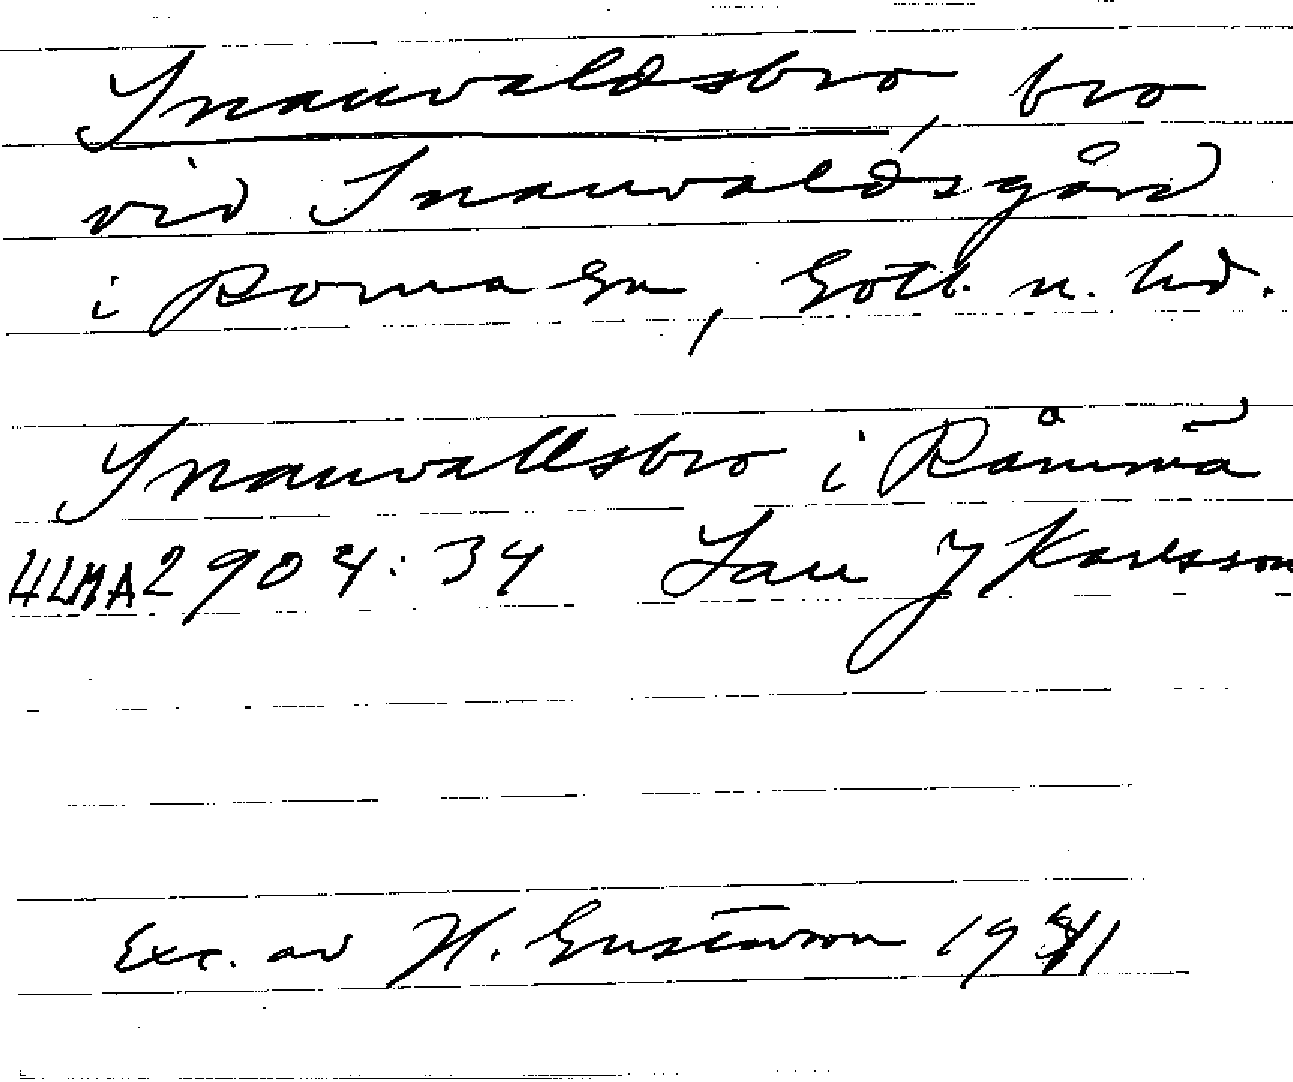 Snauvaldsbro, bro
vid Snauvaldsgård
i Roma sn, Gotl. n. hd.
Snauvallsbro i Råmmā
ULMA 2904:34 Lau J Karlsson
Exc. av H. Gustavson 1941